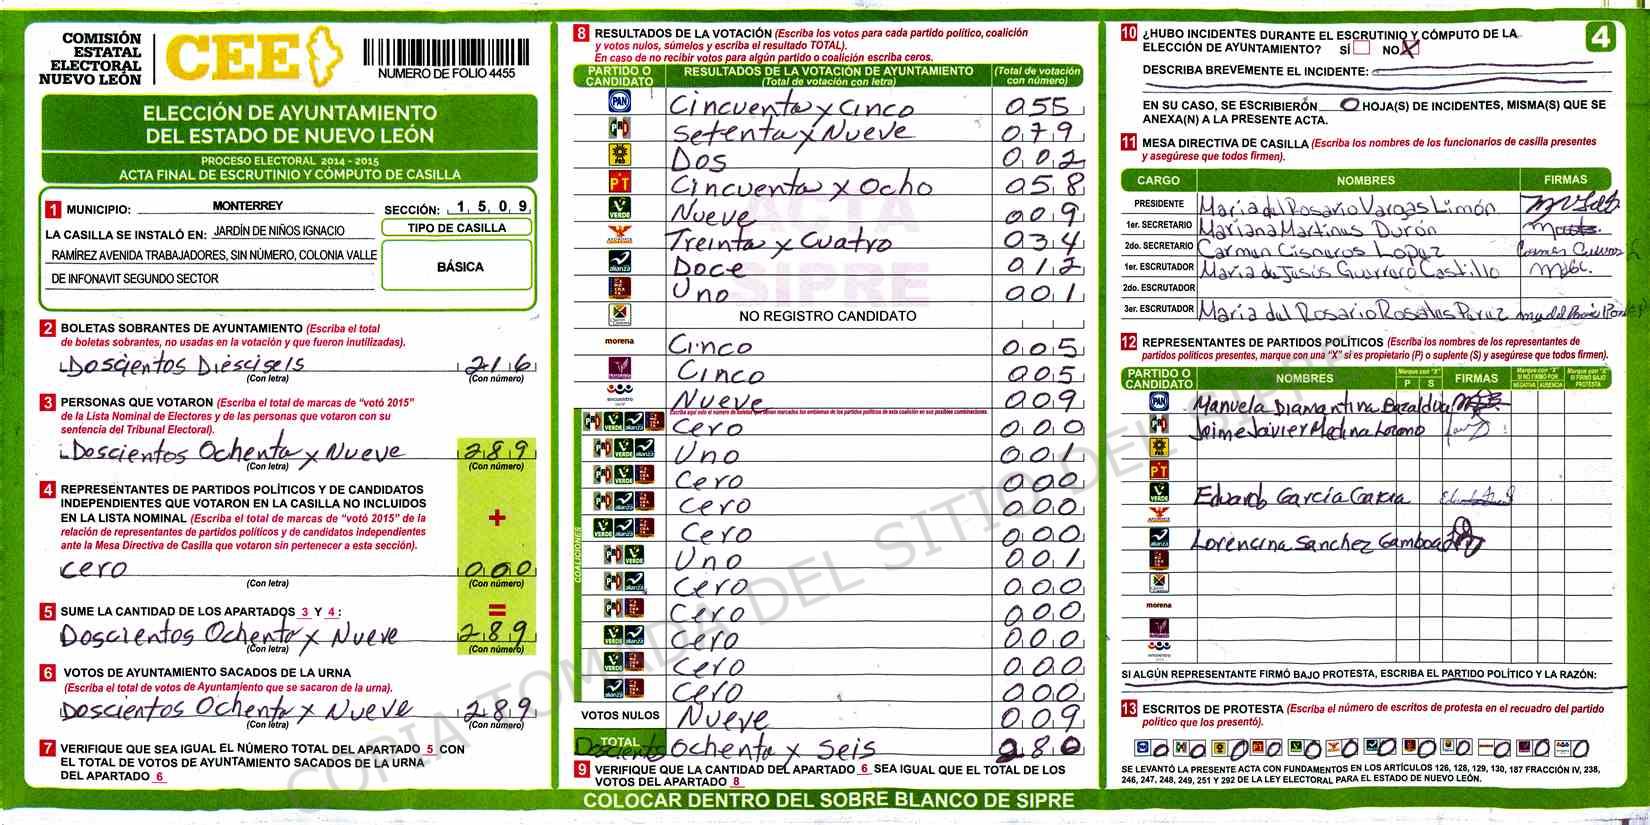 COMISIÓN
ESTATAL
ELECTORAL
NUEVO LEÓN
CEE
NUMERO DE FOLIO 4455
ELECCIÓN DE AYUNTAMIENTO
DEL ESTADO DE NUEVO LEÓN
PROCESO ELECTORAL 2014 - 2015
ACTA FINAL DE ESCRUTINIO Y CÓMPUTO DE CASILLA
1 MUNICIPIO: MONTERREY SECCIÓN: 1 5 0 9
LA CASILLA SE INSTALÓ EN: JARDÍN DE NIÑOS IGNACIO
RAMÍREZ AVENIDA TRABAJADORES, SIN NÚMERO, COLONIA VALLE
DE INFONAVIT SEGUNDO SECTOR
TIPO DE CASILLA
BÁSICA
2 BOLETAS SOBRANTES DE AYUNTAMIENTO (Escriba el total
de boletas sobrantes, no usadas en la votación y que fueron inutilizadas).
Doscientos Diesciseis 216
(Con letra) (Con número)
3 PERSONAS QUE VOTARON (Escriba el total de marcas de “votó 2015”
de la Lista Nominal de Electores y de las personas que votaron con su
sentencia del Tribunal Electoral).
Doscientos Ochenta y Nueve 289
(Con letra) (Con número)
4 REPRESENTANTES DE PARTIDOS POLÍTICOS Y DE CANDIDATOS
INDEPENDIENTES QUE VOTARON EN LA CASILLA NO INCLUIDOS
EN LA LISTA NOMINAL (Escriba el total de marcas de “votó 2015” de la
relación de representantes de partidos políticos y de candidatos independientes
ante la Mesa Directiva de Casilla que votaron sin pertenecer a esta sección).
+
cero 000
(Con letra) (Con número)
5 SUME LA CANTIDAD DE LOS APARTADOS 3 Y 4 : =
Doscientos Ochenta y Nueve 289
(Con letra) (Con número)
6 VOTOS DE AYUNTAMIENTO SACADOS DE LA URNA
(Escriba el total de votos de Ayuntamiento que se sacaron de la urna).
Doscientos Ochenta y Nueve 289
(Con letra) (Con número)
7 VERIFIQUE QUE SEA IGUAL EL NÚMERO TOTAL DEL APARTADO 5 CON
EL TOTAL DE VOTOS DE AYUNTAMIENTO SACADOS DE LA URNA
DEL APARTADO 6
8 RESULTADOS DE LA VOTACIÓN (Escriba los votos para cada partido político, coalición
y votos nulos, súmelos y escriba el resultado TOTAL).
En caso de no recibir votos para algún partido o coalición escriba ceros.
PARTIDO O CANDIDATO
RESULTADOS DE LA VOTACIÓN DE AYUNTAMIENTO
(Total de votación con letra)
(Total de votación con número)
PAN Cincuenta y Cinco 055
PRD Setenta y Nueve 079
PRD Dos 002
PT Cincuenta y Ocho 058
VERDE Nueve 009
Treinta y Cuatro 034
alianza Doce 012
Uno 001
NO REGISTRO CANDIDATO
morena Cinco 005
Cinco 005
encuentro Nueve 009
Escriba aquí solo el número de boletas que tienen marcados los emblemas de los partidos políticos de esta coalición en sus posibles combinaciones.
COALICIONES
Cero 000
Uno 001
Cero 000
Cero 000
Cero 000
Uno 001
Cero 000
Cero 000
Cero 000
Cero 000
Cero 000
VOTOS NULOS Nueve 009
TOTAL Doscientos Ochenta y Seis 280
9 VERIFIQUE QUE LA CANTIDAD DEL APARTADO 6 SEA IGUAL QUE EL TOTAL DE LOS
VOTOS DEL APARTADO 8
COLOCAR DENTRO DEL SOBRE BLANCO DE SIPRE
ACTA
SIPRE
COPIA TOMADA DEL SITIO DEL SIPRE
10 ¿HUBO INCIDENTES DURANTE EL ESCRUTINIO Y CÓMPUTO DE LA
ELECCIÓN DE AYUNTAMIENTO? SÍ NO X
4
DESCRIBA BREVEMENTE EL INCIDENTE:
EN SU CASO, SE ESCRIBIERÓN 0 HOJA(S) DE INCIDENTES, MISMA(S) QUE SE
ANEXA(N) A LA PRESENTE ACTA.
11 MESA DIRECTIVA DE CASILLA (Escriba los nombres de los funcionarios de casilla presentes
y asegúrese que todos firmen).
CARGO NOMBRES FIRMAS
PRESIDENTE Maria del Rosario Vargas Limón
1er. SECRETARIO Mariana Martinus Durón
2do. SECRETARIO Carmen Cisneros Lopez
1er. ESCRUTADOR Maria de Jesús Guerrero Castillo
2do. ESCRUTADOR
3er. ESCRUTADOR Maria del Rosario Rosales Perez
12 REPRESENTANTES DE PARTIDOS POLÍTICOS (Escriba los nombres de los representantes de
partidos políticos presentes, marque con “X” si es propietario (P) o suplente (S) y asegúrese que todos firmen).
PARTIDO O CANDIDATO NOMBRES Marque con “X” P S FIRMAS Marque con “X” SI NO FIRMÓ POR NEGATIVA AUSENCIA Marque con “X” SI FIRMÓ BAJO PROTESTA
PAN Manuela Diamantina Bazaldua
Jaime Javier Medina Lozano
PRD
PT
VERDE Eduardo García Garza
alianza Lorencina Sanchez Gamboa
morena
encuentro
SI ALGÚN REPRESENTANTE FIRMÓ BAJO PROTESTA, ESCRIBA EL PARTIDO POLÍTICO Y LA RAZÓN:
13 ESCRITOS DE PROTESTA (Escriba el número de escritos de protesta en el recuadro del partido
político que los presentó).
0 0 0 0 0 0 0 0 0 0 0 0
SE LEVANTÓ LA PRESENTE ACTA CON FUNDAMENTOS EN LOS ARTÍCULOS 126, 128, 129, 130, 187 FRACCIÓN IV, 238,
246, 247, 248, 249, 251 Y 292 DE LA LEY ELECTORAL PARA EL ESTADO DE NUEVO LEÓN.